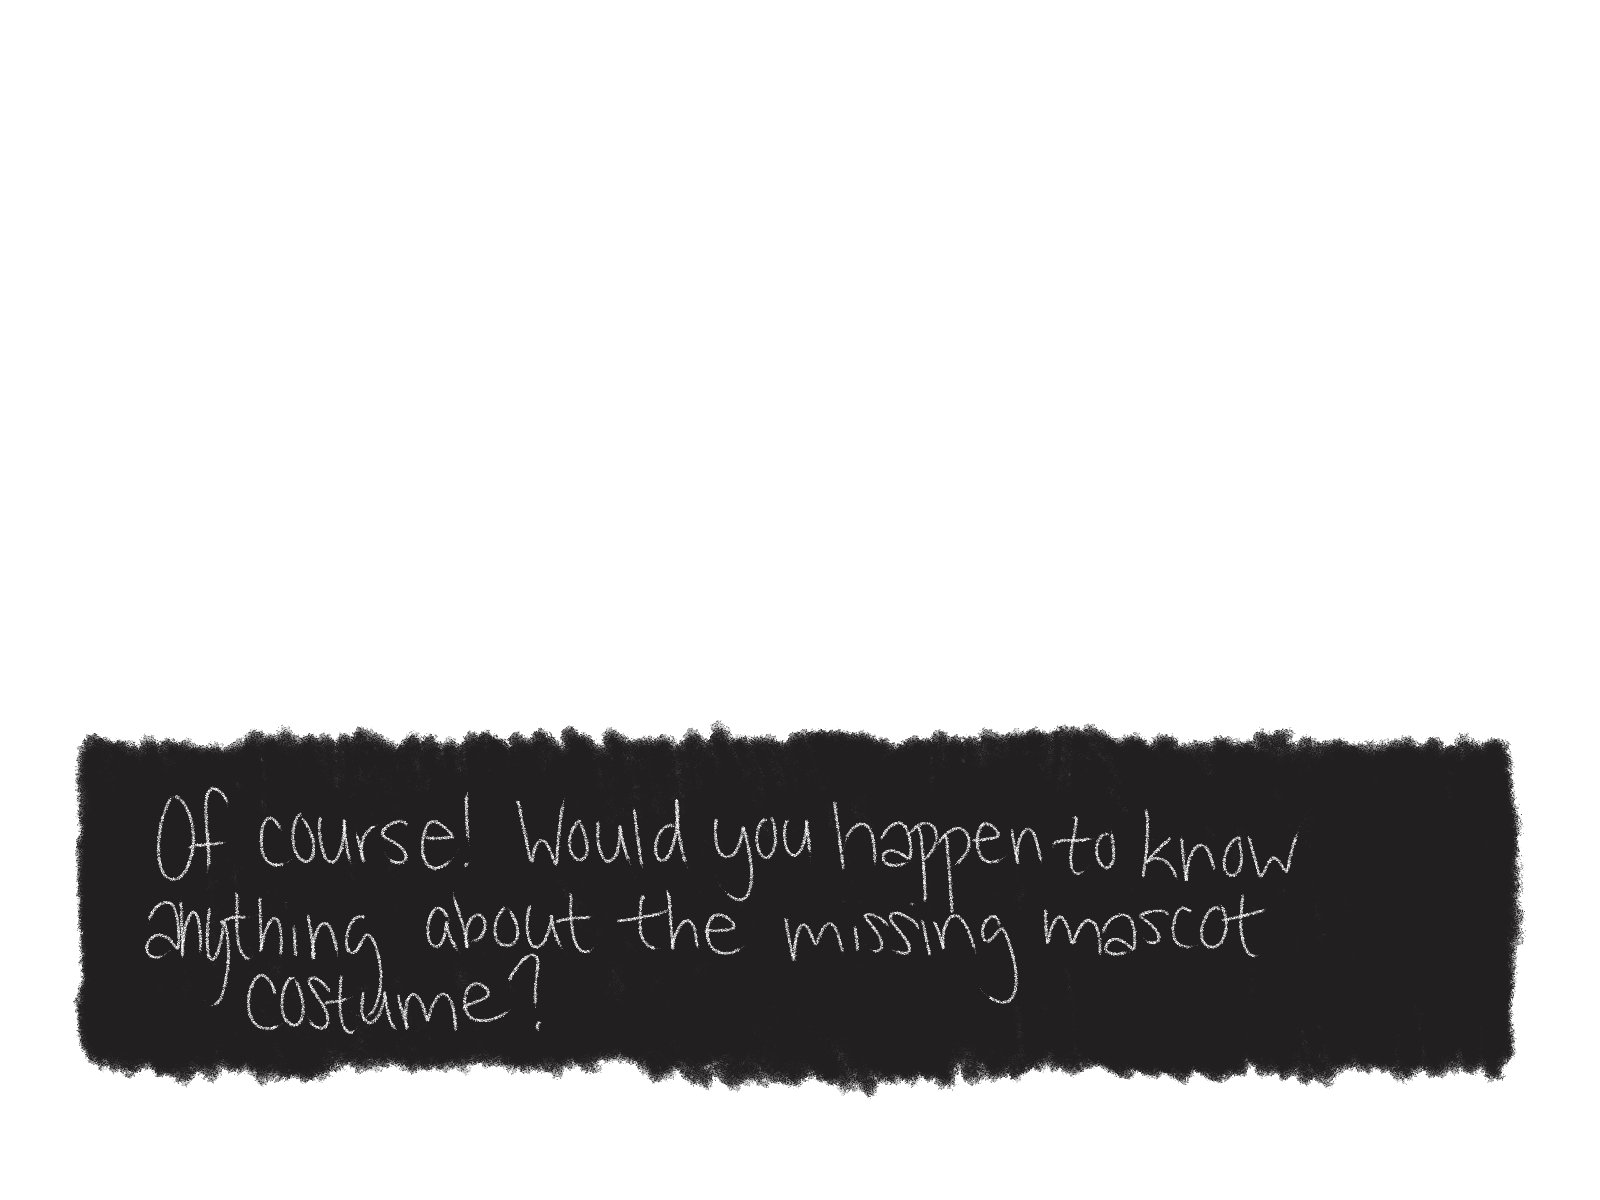 Of course! Would you happen to know
anything about the missing mascot
costume?